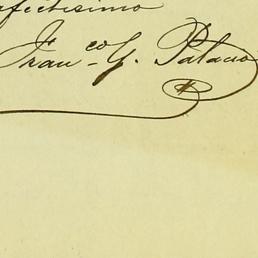 afectisimo
Fran.co G. Palacio